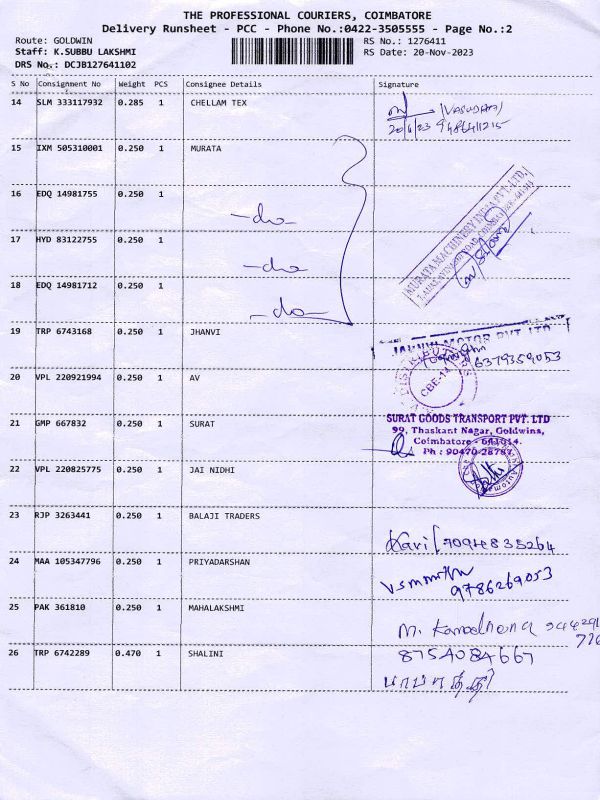 THE PROFESSIONAL COURIERS, COIMBATORE
Delivery Runsheet - PCC - Phone No.:0422-3505555 - Page No.:2
Route: GOLDWIN RS No.: 1276411
Staff: K.SUBBU LAKSHMI RS Date: 20-Nov-2023
DRS No.: DCJB127641102
S No Consignment No Weight PCS Consignee Details Signature
14 SLM 333117932 0.285 1 CHELLAM TEX
15 IXM 505310001 0.250 1 MURATA
16 EDQ 14981755 0.250 1
-do-
17 HYD 83122755 0.250 1
-do-
18 EDQ 14981712 0.250 1
-do-
MURATA MACHINERY INDIA PVT. LTD.
19 TRP 6743168 0.250 1 JHANVI
6379359053
20 VPL 220921994 0.250 1 AV
CBE-14
21 GMP 667832 0.250 1 SURAT
SURAT GOODS TRANSPORT PVT. LTD
99, Thaskant Nagar, Goldwins,
Coimbatore - 641014.
Ph : 90470-28787.
22 VPL 220825775 0.250 1 JAI NIDHI
23 RJP 3263441 0.250 1 BALAJI TRADERS
24 MAA 105347796 0.250 1 PRIYADARSHAN
9786269053
25 PAK 361810 0.250 1 MAHALAKSHMI
26 TRP 6742289 0.470 1 SHALINI 8754084667